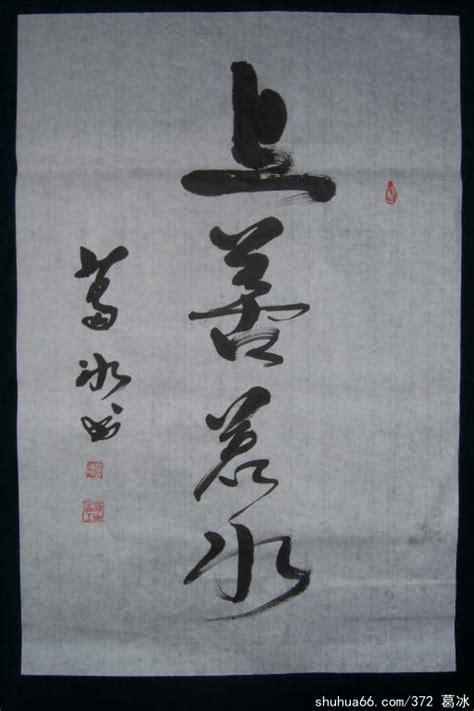 上善若水
葛冰书
shuhua66.com/372 葛冰